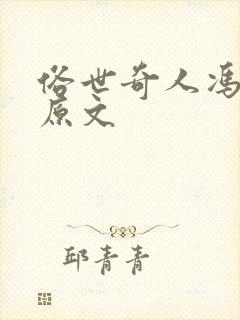 俗世奇人冯
原文
邱青青